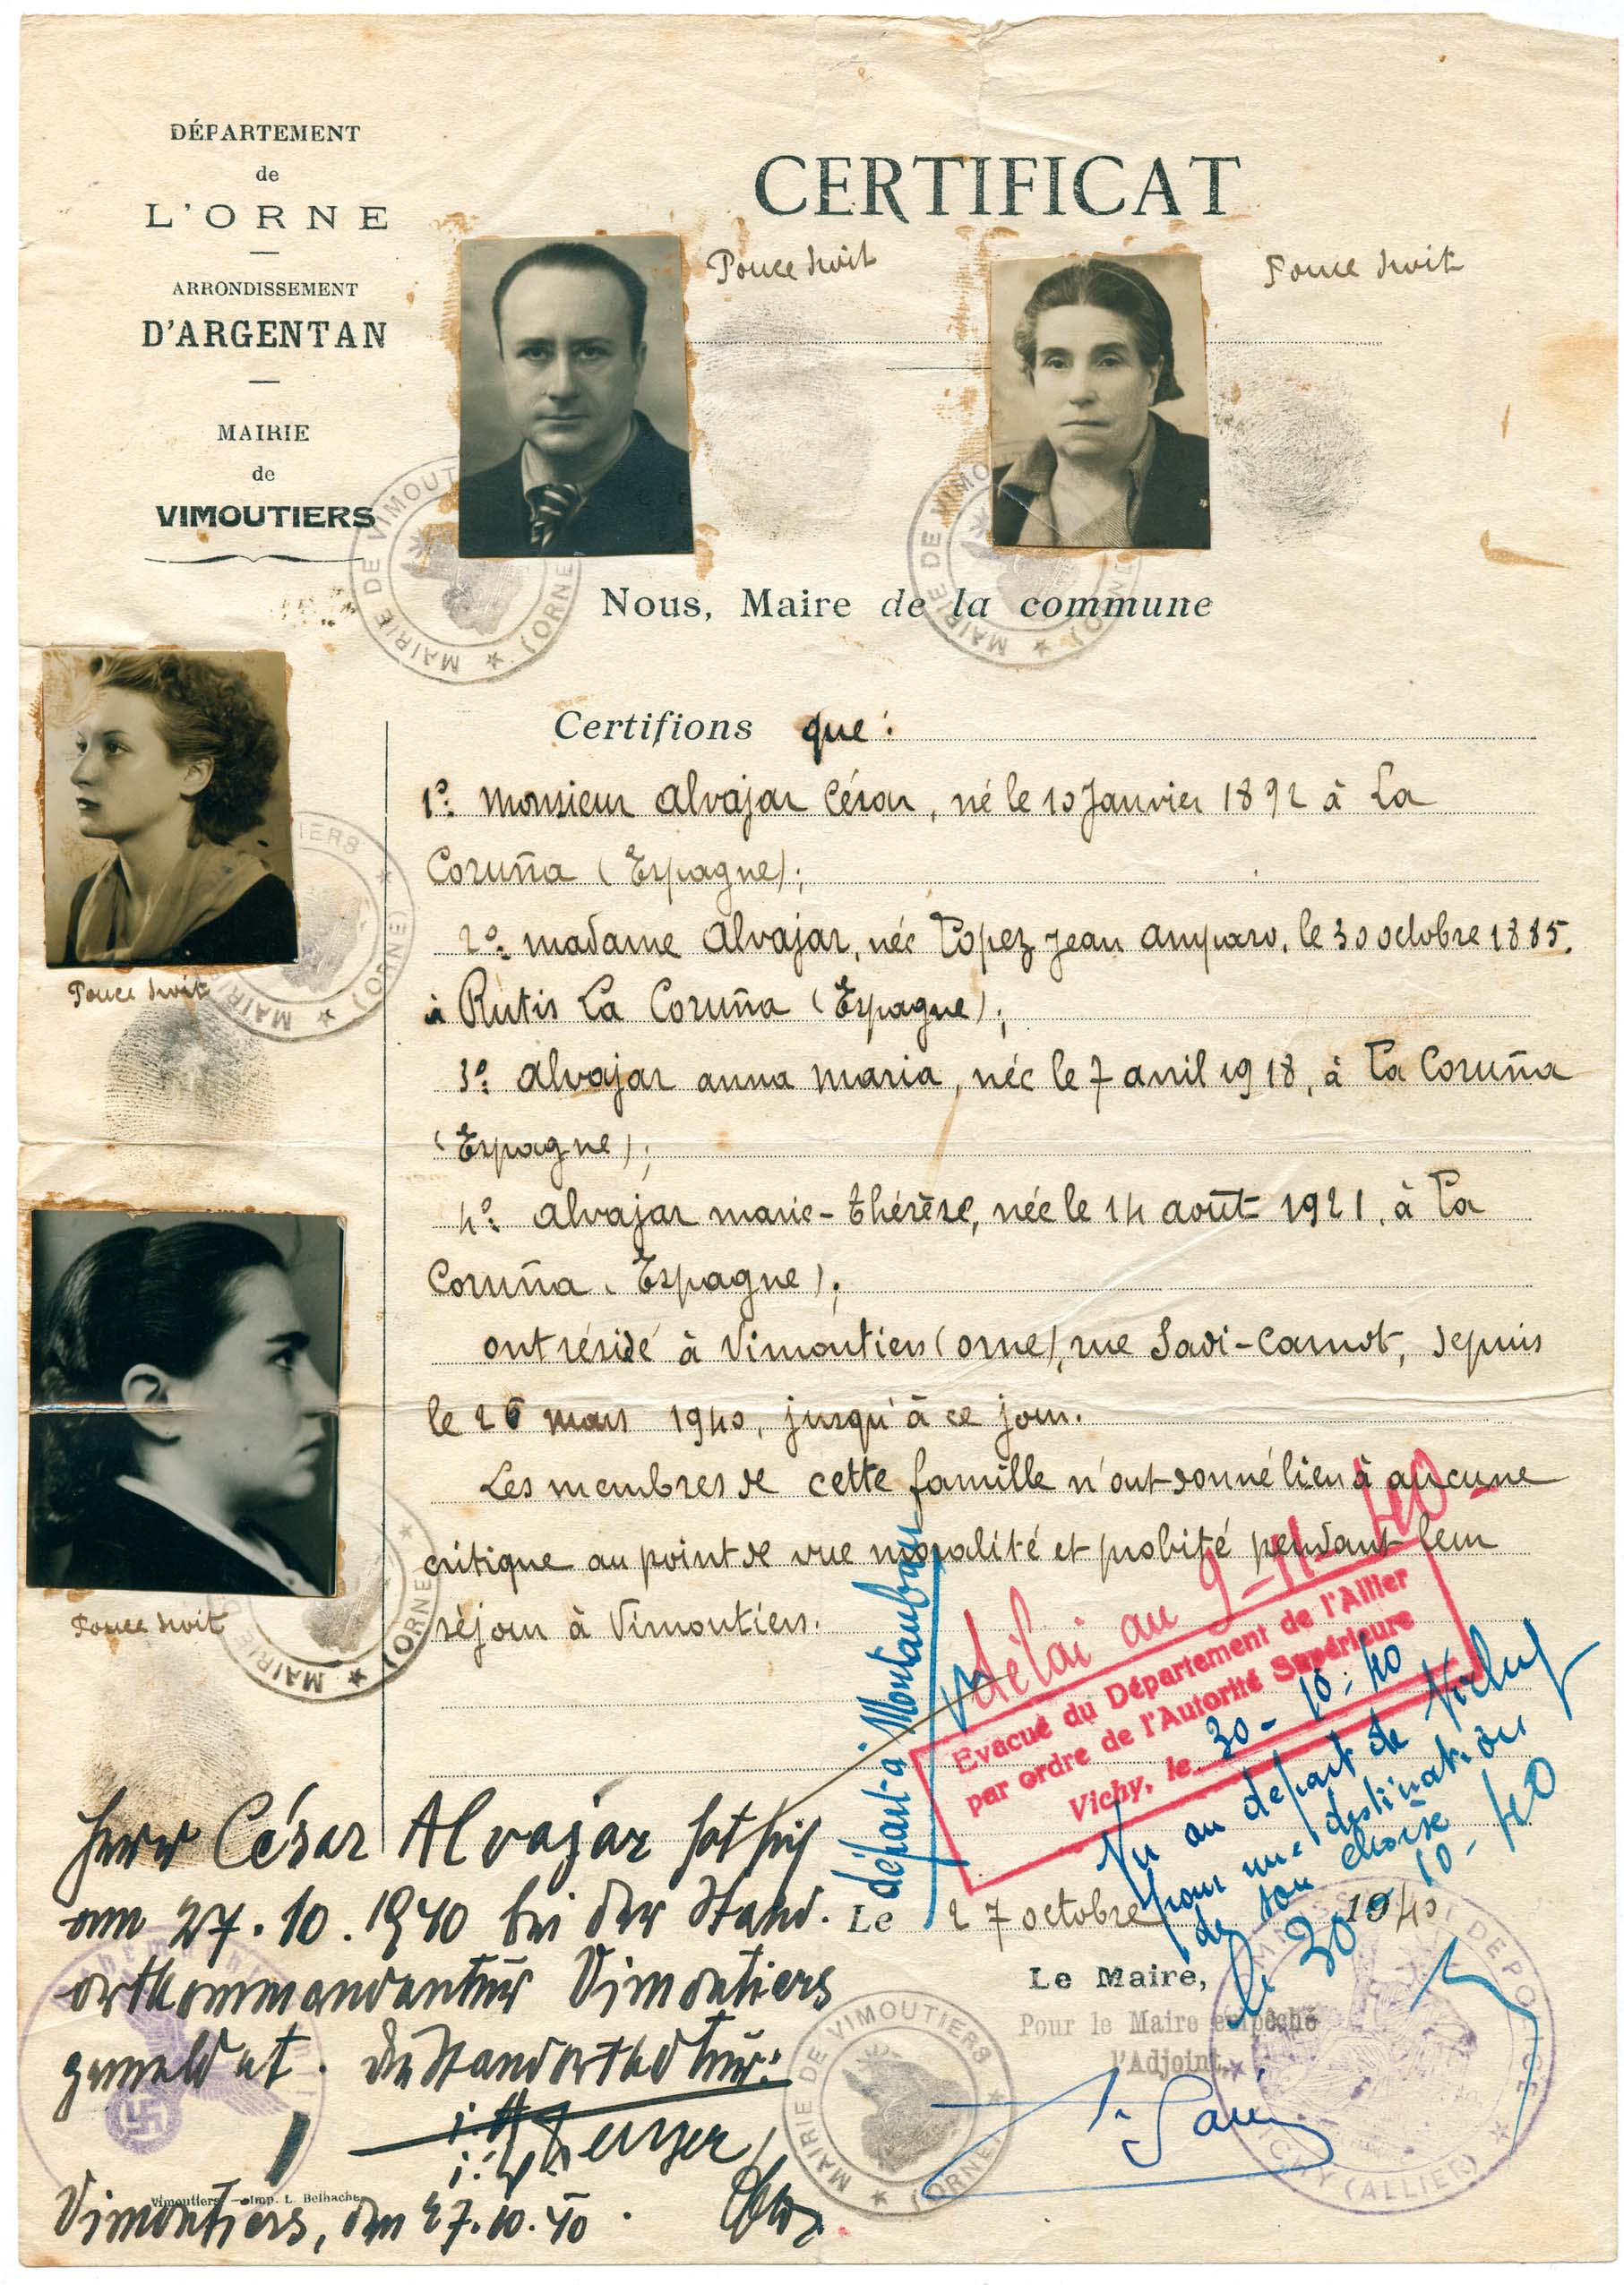 DÉPARTEMENT
de
L'ORNE
ARRONDISSEMENT
D'ARGENTAN
MAIRIE
de
VIMOUTIERS
CERTIFICAT
Pouce droit
Pouce droit
MAIRIE DE VIMOUT
(ORNE)
MAIRIE DE VIMO
(O
Nous, Maire de la commune
Certifions que :
1º: Monsieur Alvajar César, né le 10 Janvier 1892 à La
Coruña (Espagne);
2º: Madame Alvajar, née Lopez Jean Amparo, le 30 octobre 1885.
à Rutis La Coruña (Espagne);
3º: Alvajar Anna Maria, née le 7 avril 1918, à La Coruña
(Espagne);
4º: Alvajar Marie-Thérèse, née le 14 août 1921, à La
Coruña (Espagne);
ont résidé à Vimoutiers (Orne), rue Sadi-Carnot, depuis
le 26 mars 1940, jusqu'à ce jour.
Les membres de cette famille n'ont donné lieu à aucune
critique au point de vue moralité et probité pendant leur
séjour à Vimoutiers.
Pouce droit
MAIRI
TIERS
(ORNE)
Pouce droit
MAIRIE
(ORNE)
départ à Montauban
délai au 9-11-40-
Evacué du Département de l'Allier
par ordre de l'Autorité Supérieure
Vichy, le 30-10-40
Vu au départ de Vichy
pour une destination
de son choix
le 30-10-40
Le 27 octobre 1940
Le Maire,
Pour le Maire empêché
l'Adjoint,
MAIRIE DE VIMOUTIERS
(ORNE)
DE POLICE
VICHY (ALLIER)
Herr César Alvajar hat sich
am 27.10.1940 bei der Stand-
ortkommandantur Vimoutiers
gemeldet.
Vimoutiers. — Imp. L. Belhache
Vimoutiers, den 27.10.40.